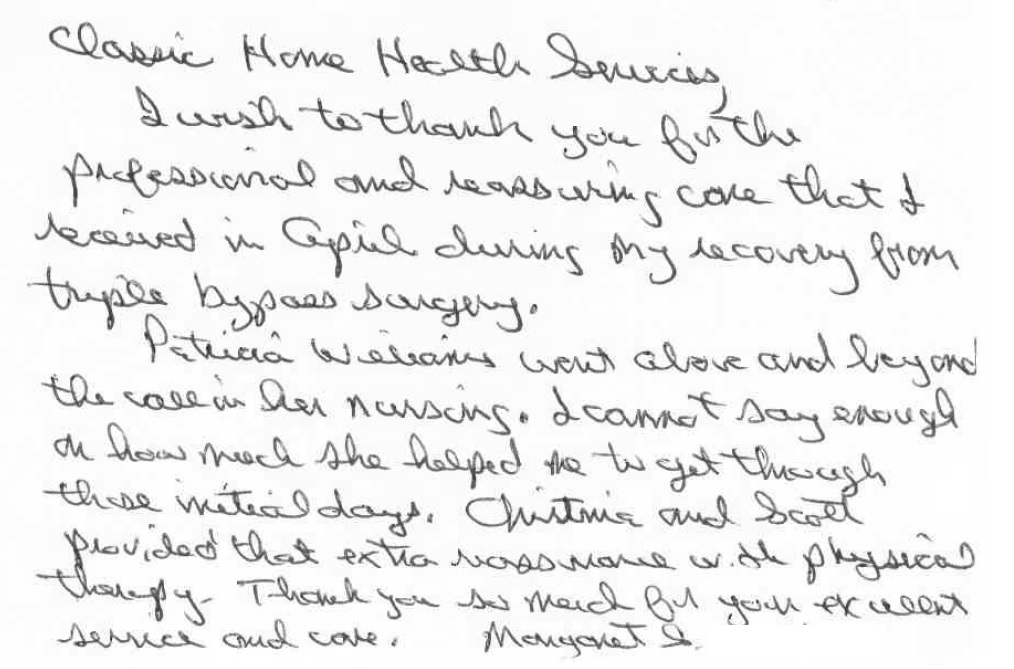 Classic Home Health Services,
I wish to thank you for the
professional and reassuring care that I
received in April during my recovery from
triple bypass surgery.
Patricia Williams went above and beyond
the call in her nursing. I cannot say enough
on how much she helped me to get through
those initial days. Christina and Scott
provided that extra reassurance with physical
therapy. Thank you so much for your excellent
service and care. Margaret S.